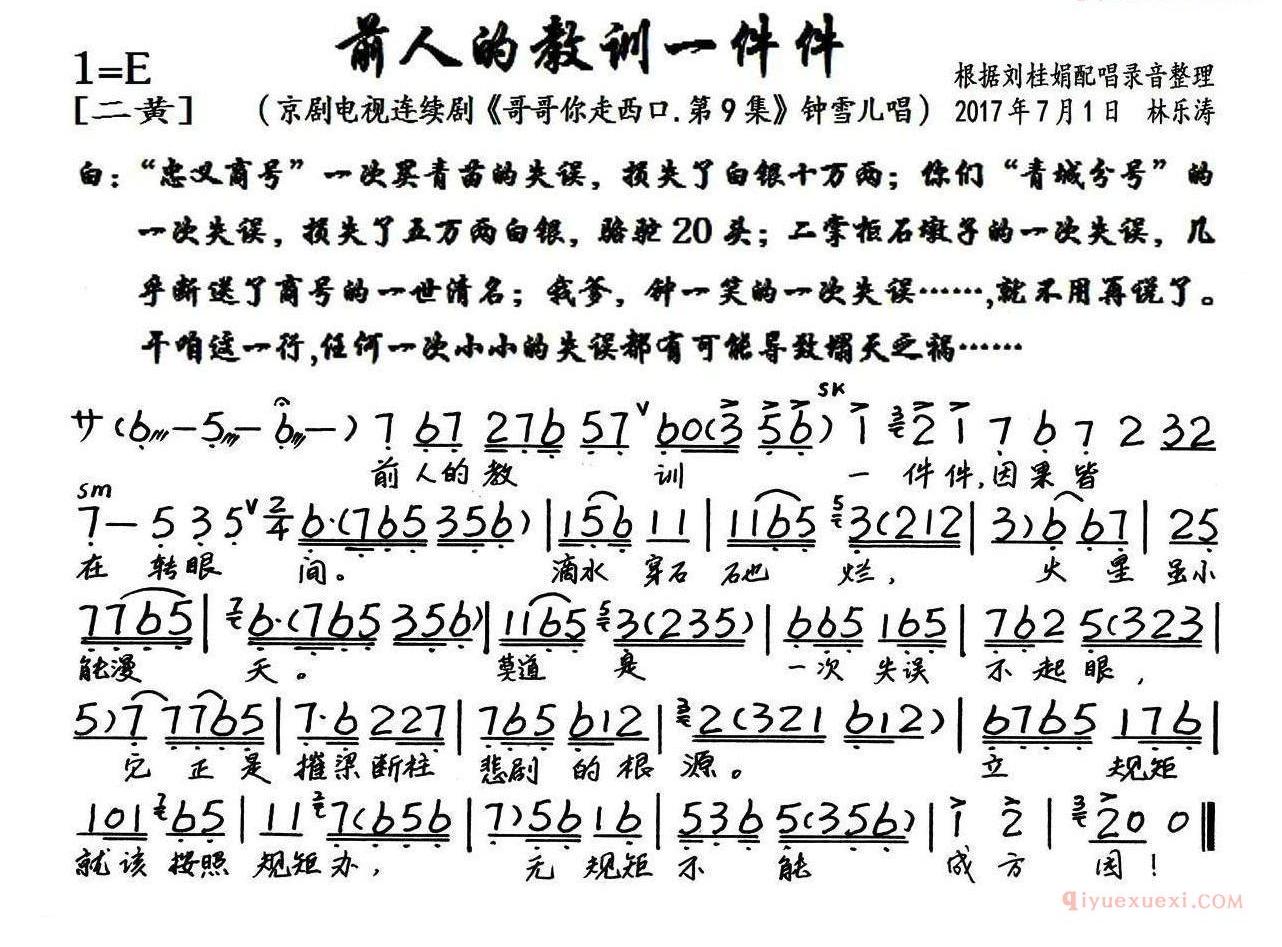 前人的教训一件件
1=E
[二黄]
(京剧电视连续剧《哥哥你走西口.第9集》钟雪儿唱)
根据刘桂娟配唱录音整理
2017年7月1日 林乐涛
白:“忠义商号”一次买青苗的失误,损失了白银十万两;你们“青城分号”的
一次失误,损失了五万两白银,骆驼20头;二掌柜石墩子的一次失误,几
乎断送了商号的一世清名;我爹,钟一笑的一次失误……,就不用再说了。
干咱这一行,任何一次小小的失误都有可能导致塌天之祸……
サ(6-5-6-) 7 67 276 57 ∨ 60(3 56) SK 1 2 1 7 6 7 2 32
前人的教 训 一 件件,因果皆
sm
7- 5 3 5 ∨ 2/4 6·(765 356)|156 11|1165 3(212|3)6 67|25
在 转眼 间。 滴水 穿石 石也 烂, 火 星 虽小
7765|6·(765 356)|1165 3(235)|665 165|762 5(323|
能漫 天。 莫道 是 一次 失误 不起眼,
5)7 7765|7·6 227|765 612|2(321 612)|6765 176|
它 正是 摧梁断柱 悲剧 的根 源。 立 规矩
101 65|11 7(656|7)56 16|536 5(356)|1 2|20 0‖
就该 按照 规矩办, 无 规矩 不 能 成方 圆!
qiyuexuexi.COM